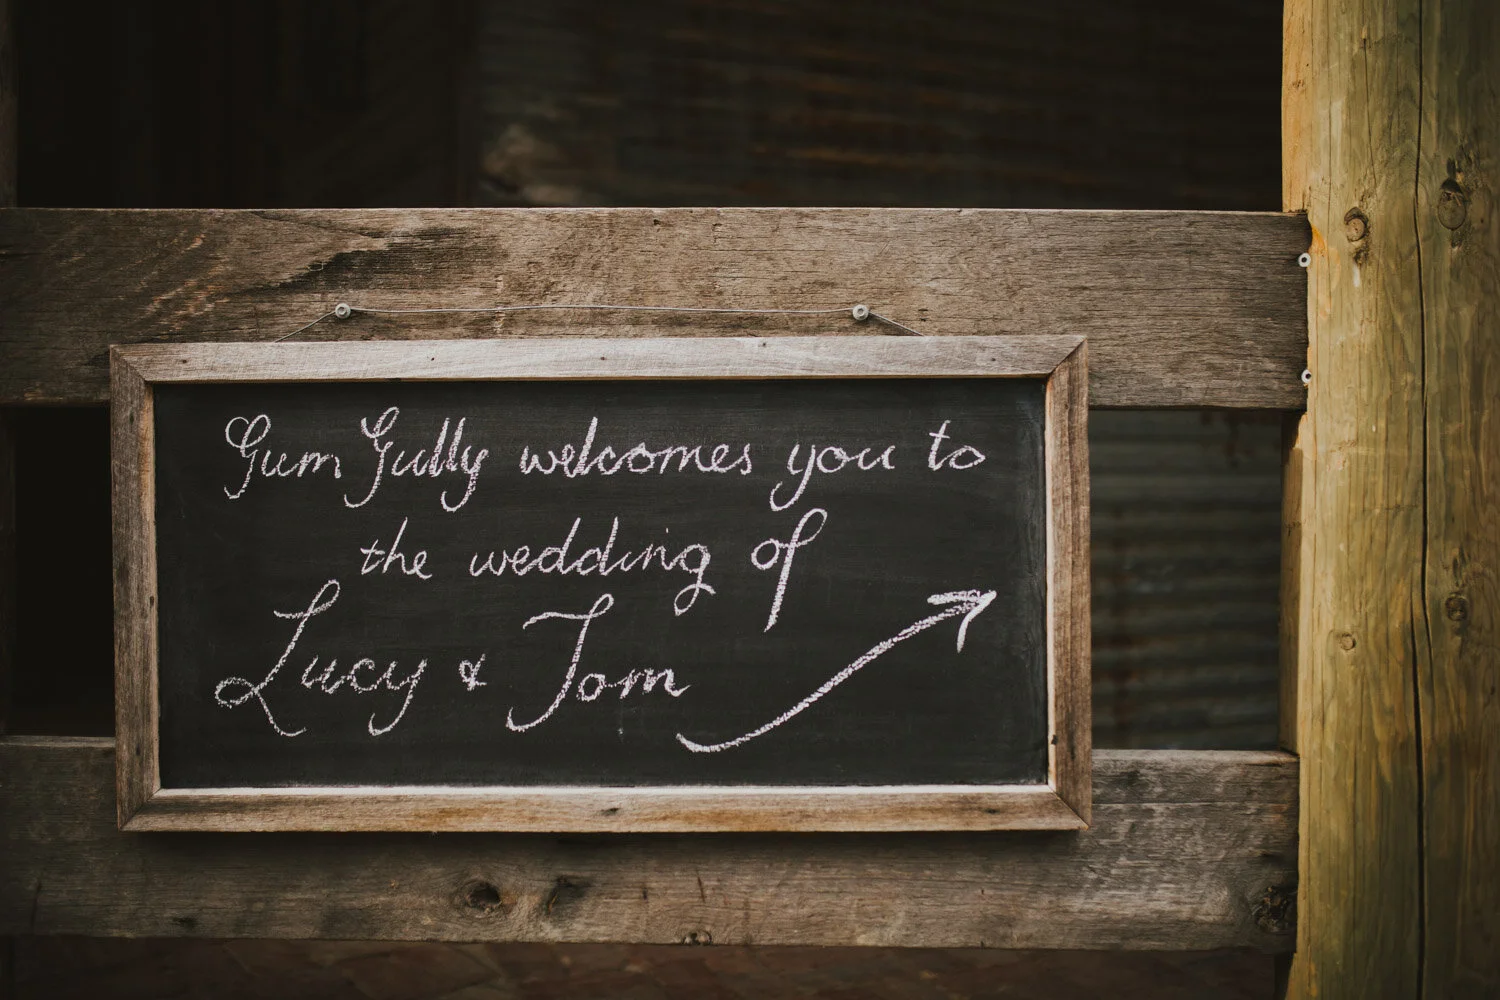 Gum Gully welcomes you to
the wedding of
Lucy & Tom